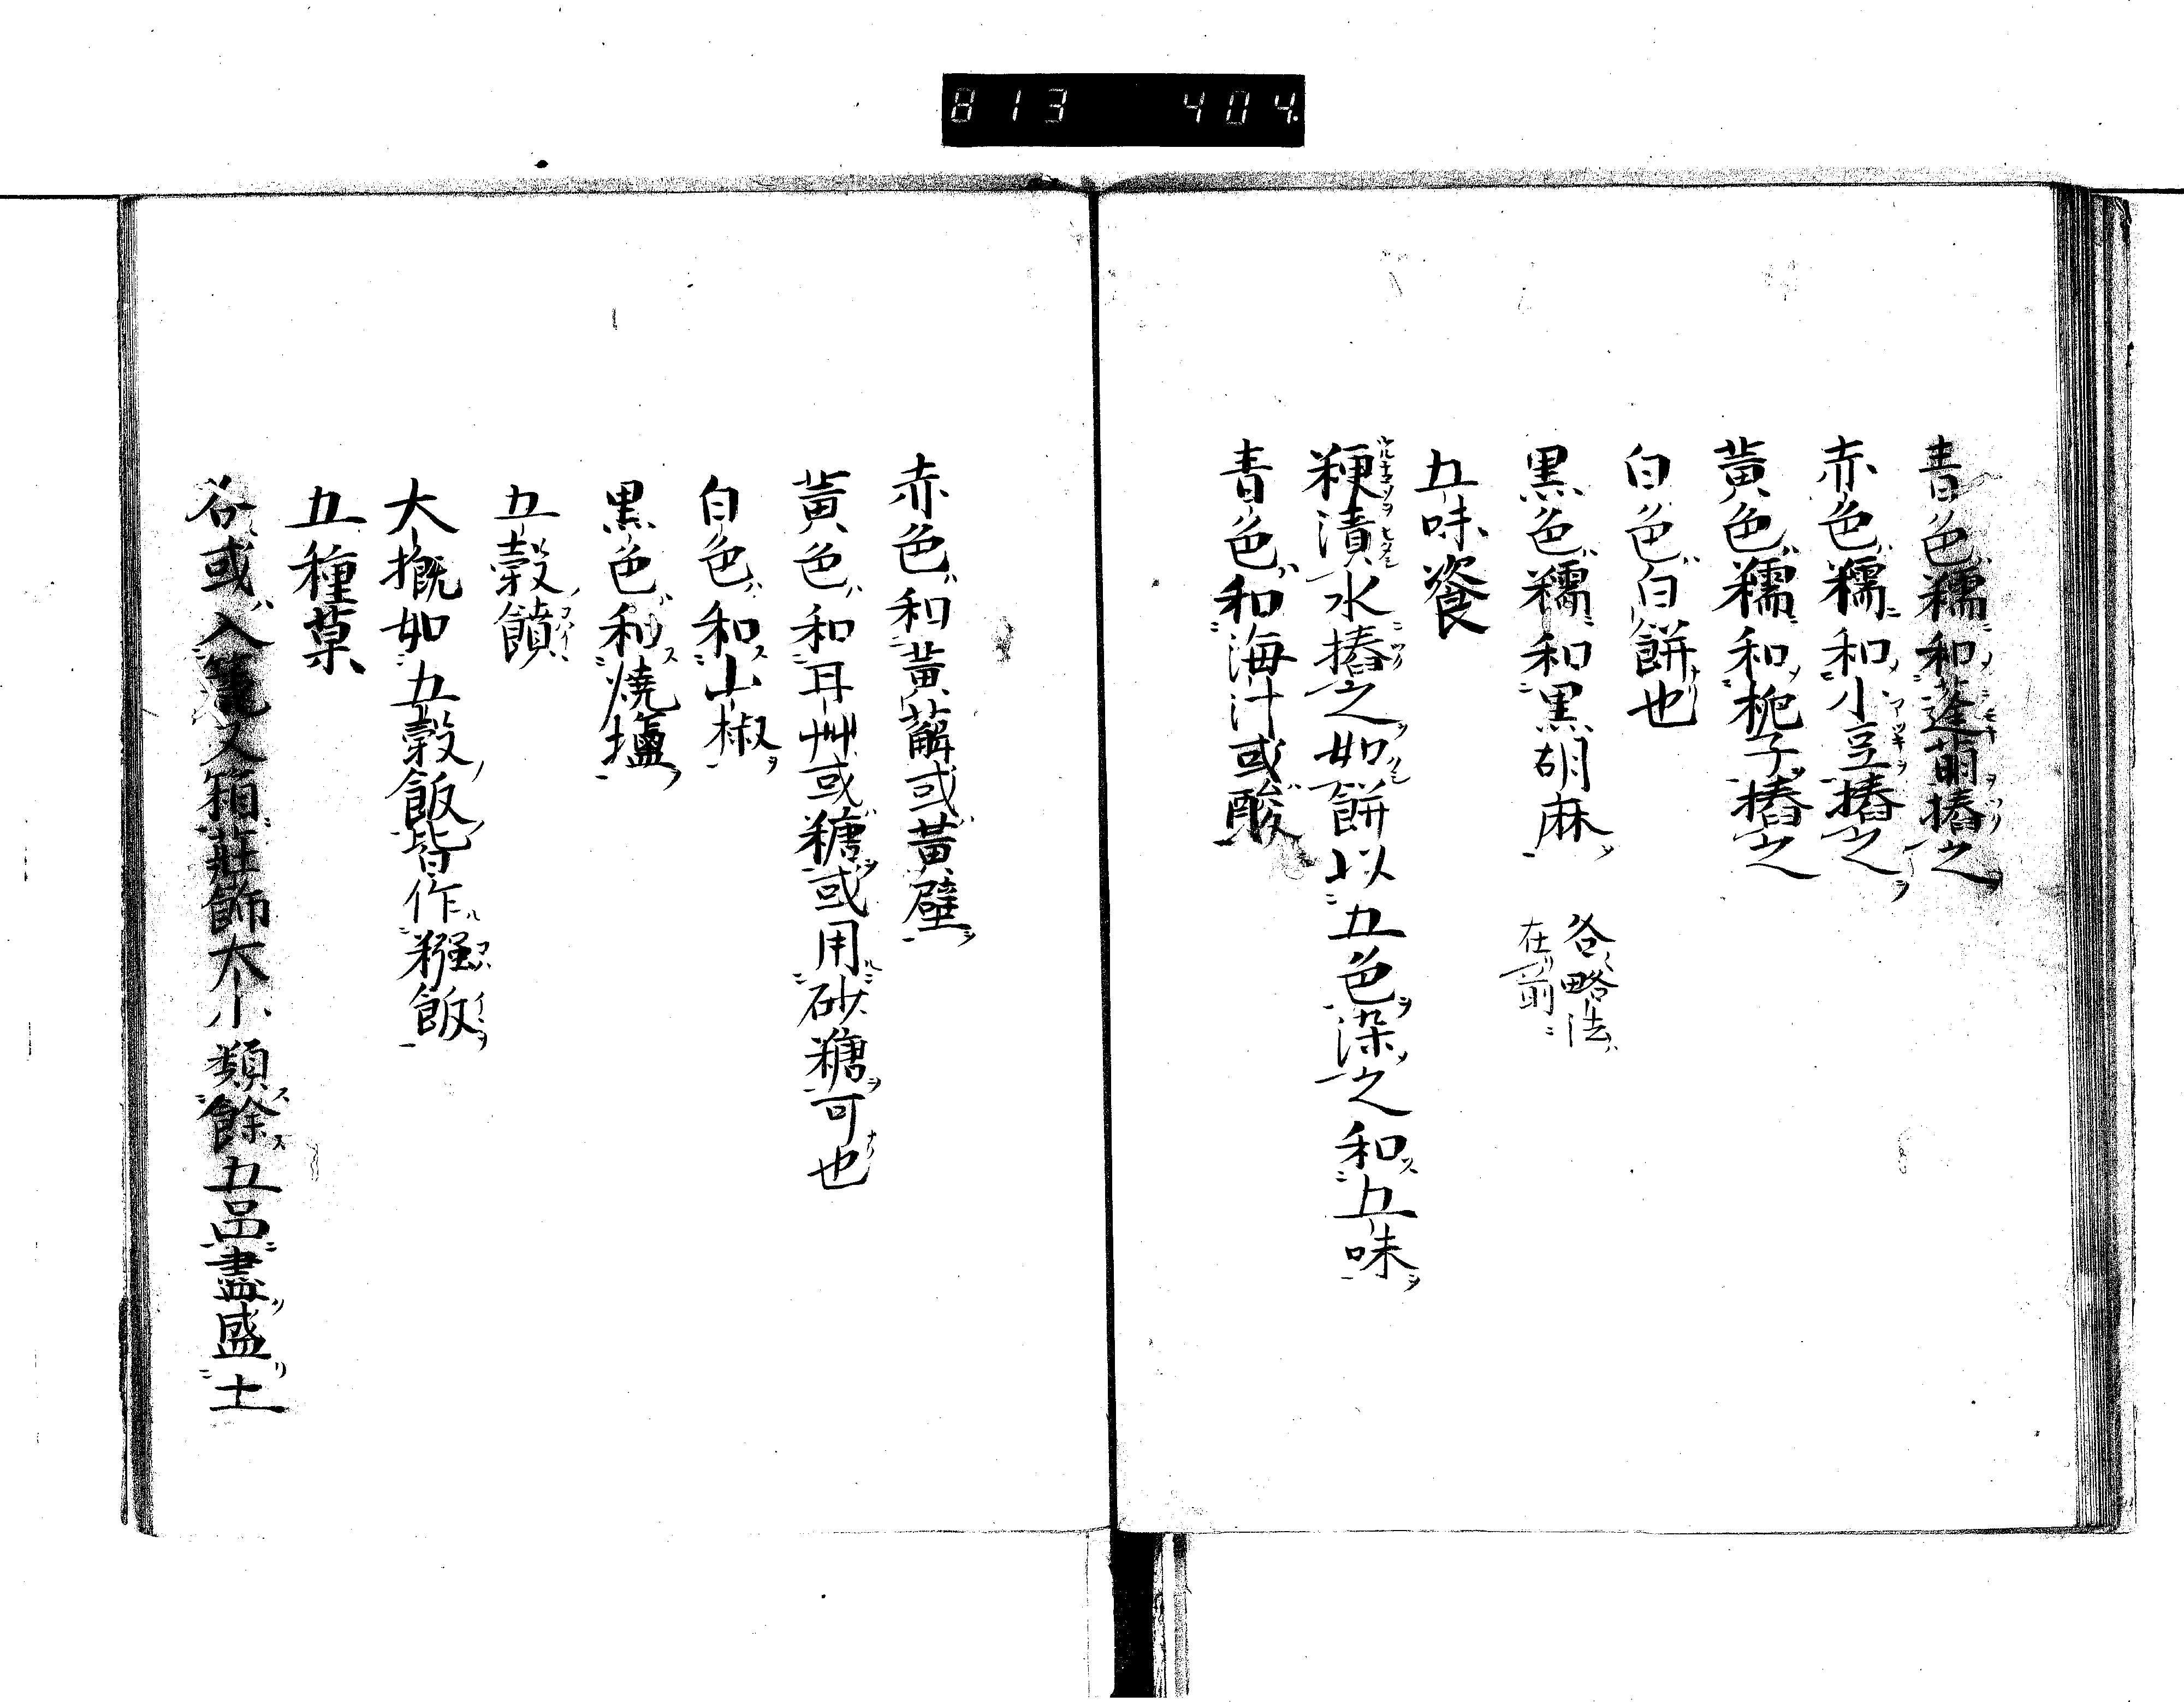 813 404.
青色糯和蓬萌摏之
赤色糯和小豆摏之
黄色糯和梔子摏之
白色白餅也
黒色糯和黒胡麻
各略法
在前
五味餈
粳漬水摏之如餅以五色染之和五味
青色和海汁或酸
赤色和黄蘗或黄壁
黄色和耳艸或糖或用砂糖可也
白色和山椒
黒色和焼塩
五穀饙
大摡如五穀飯皆作糨飯
五種菓
各或入篭又箱荘飾大小類餘五品盡盛土